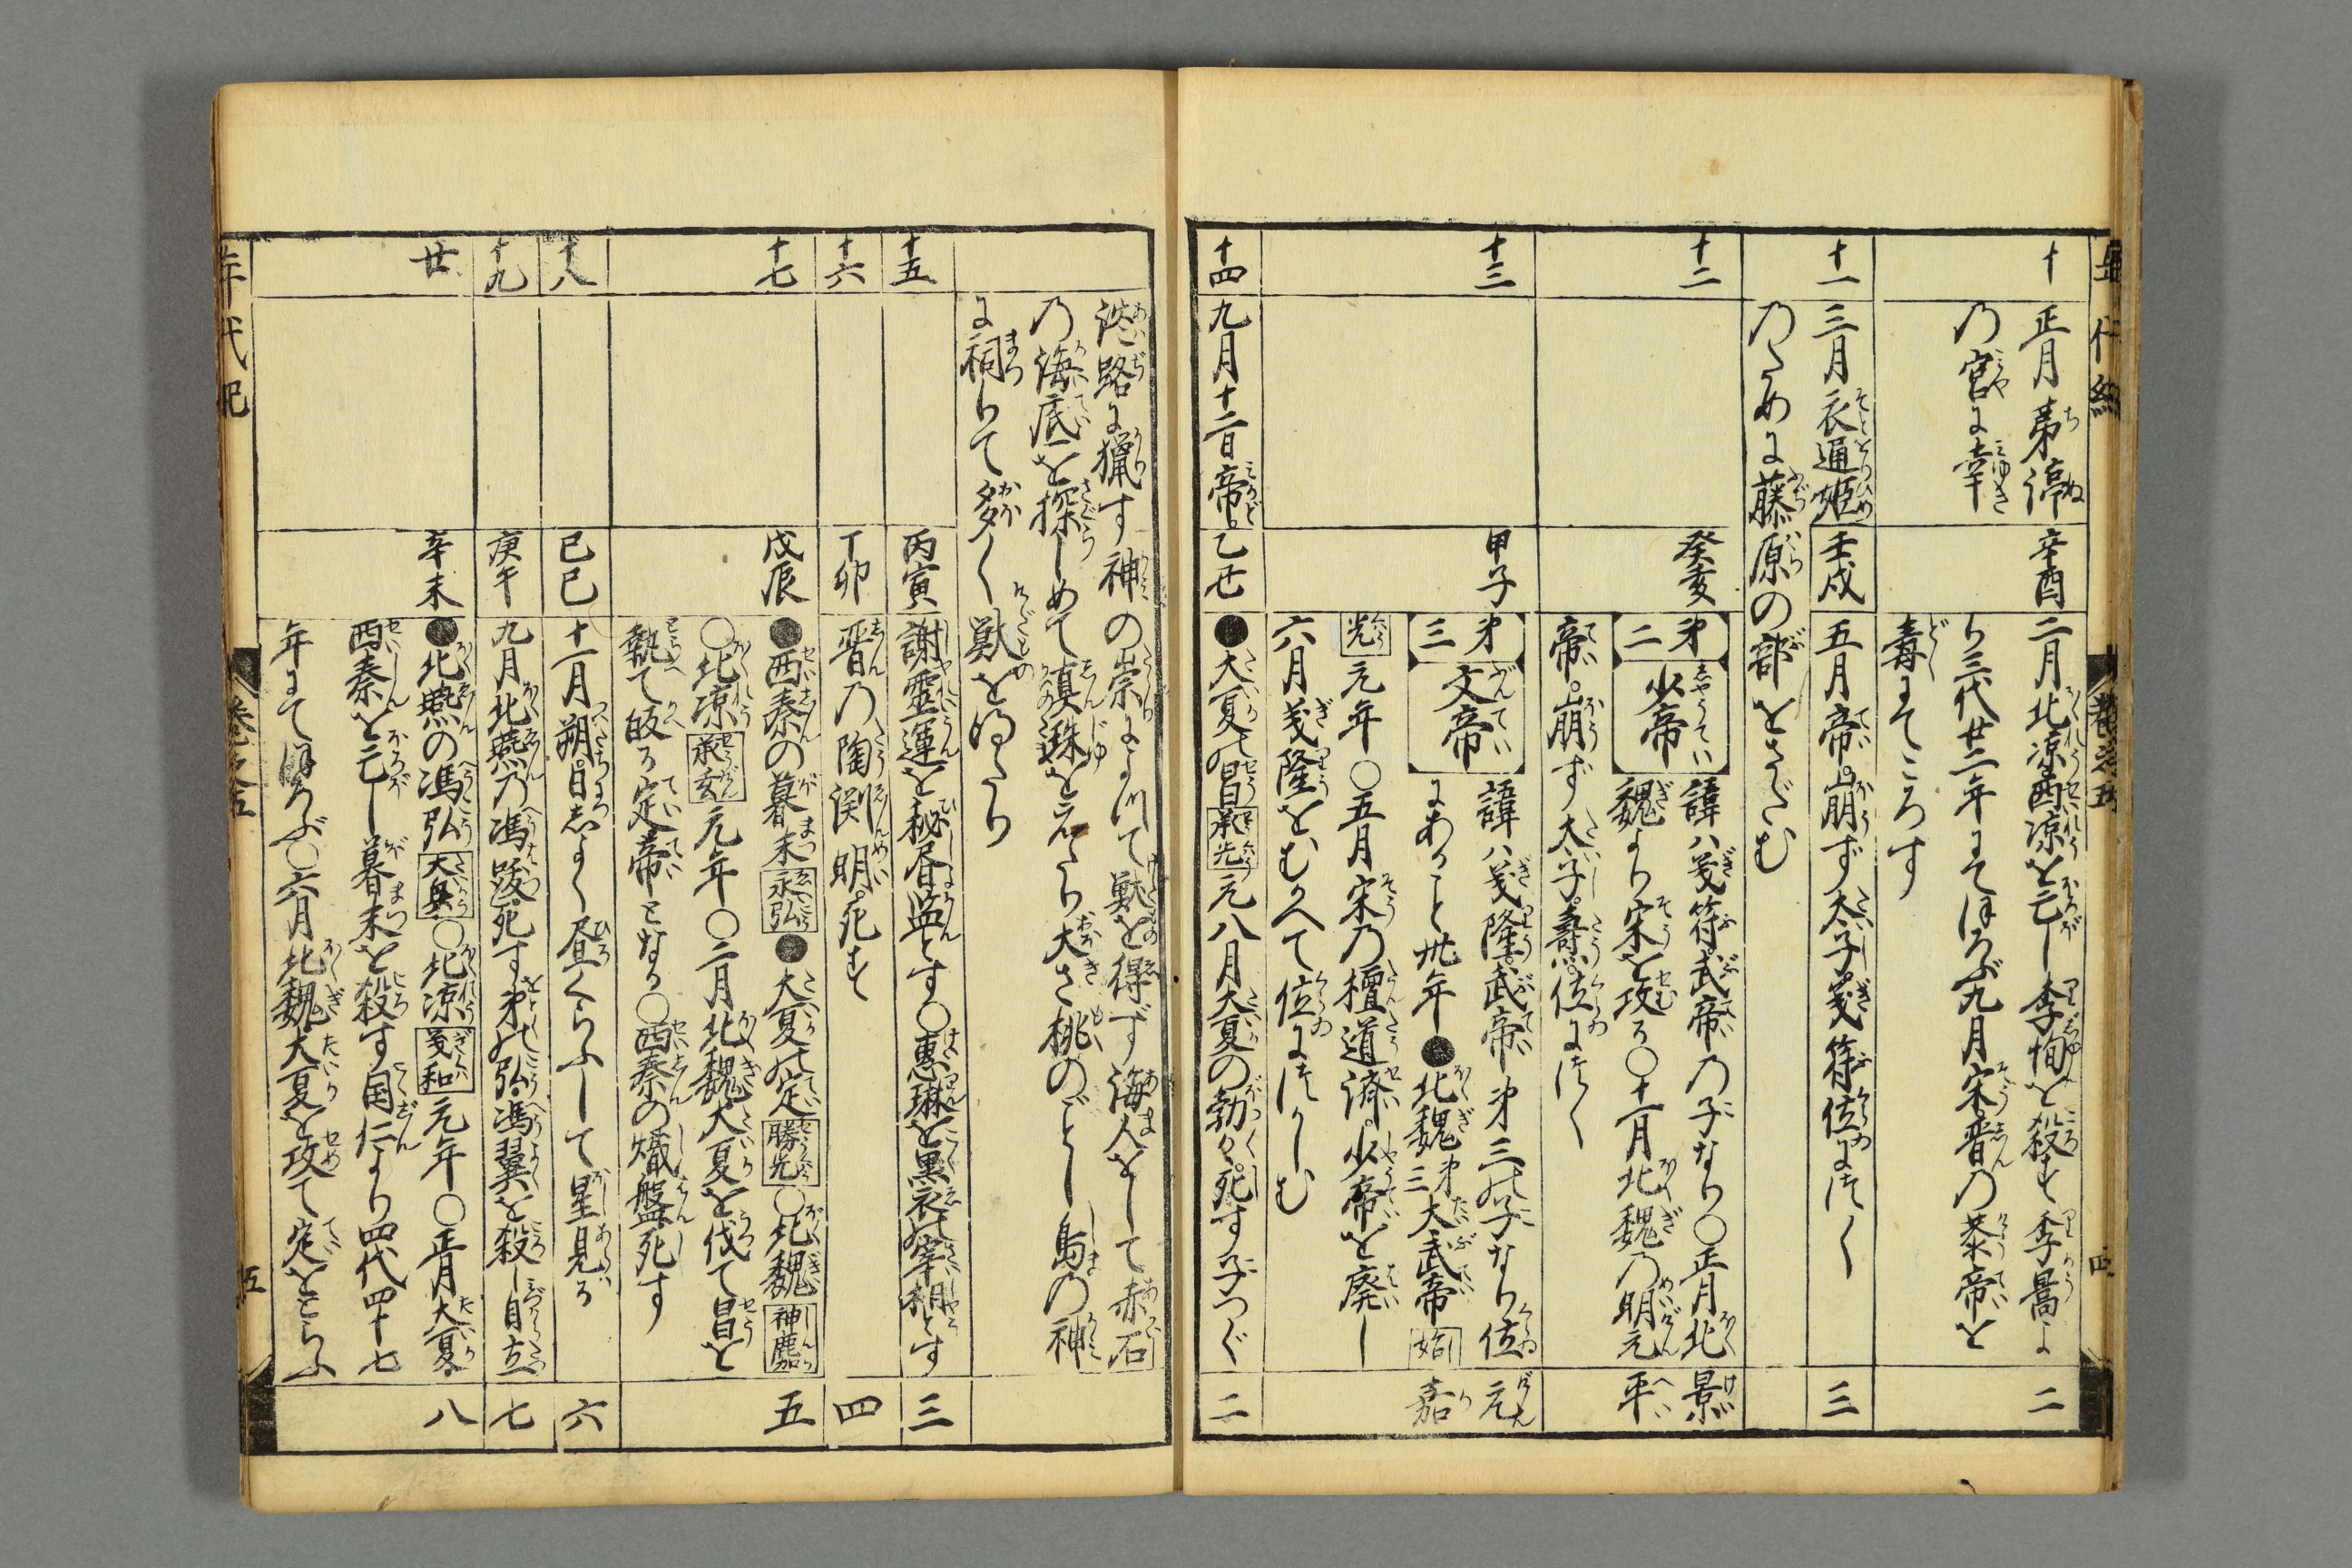 十
正月茅渟
の宮に幸
辛酉
二月北凉西凉を亡し李恂を殺す李暠よ
り三代廿二年にてほろぶ九月宋晋の恭帝を
毒にてころす
二
十一
三月衣通姫
のために藤原の部をさだむ
壬戌
五月帝崩ず太子義符位につく
三
十二
癸亥
第二
少帝
諱ハ義符武帝の子なり〇正月北
魏より宋を攻る〇十一月北魏の明元
帝崩ず太子燾位につく
景平
十三
甲子
第三
文帝
諱ハ義隆武帝第三の子なり位
にあること卅年●北魏第三大武帝始
光元年〇五月宋の檀道済少帝を廃し
六月義隆をむかへて位につかしむ
元嘉
十四
九月十二日帝
乙丑
●大夏の昌承光元八月大夏の勃々死す子つぐ
二
淡路に獵す神の崇によつて獣を得ず海人をして赤石
の海底を探しめて真珠をえたり大さ桃のごとし島の神
に祠りて多く獣を得たり
十五
丙寅
謝霊運を秘書監とす〇惠琳を黒衣の宰相とす
三
十六
丁卯
晋の陶渕明死す
四
十七
戊辰
●西秦の暮末永弘●大夏の定勝光〇北魏神䴥
〇北凉承玄元年〇二月北魏大夏を伐て昌を
執て皈る定帝となる〇西秦の熾盤死す
五
十八
己巳
十一月朔日しよく昼くらふして星見る
六
十九
庚午
九月北燕の馮跋死す弟の弘馮翼を殺し自立
七
廿
辛未
●北燕の馮弘大興〇北凉義和元年〇正月大夏
西秦を亡し暮末を殺す国仁より四代四十七
年にてほろぶ〇六月北魏大夏を攻て定をとらふ
八
年代紀
巻之五
五